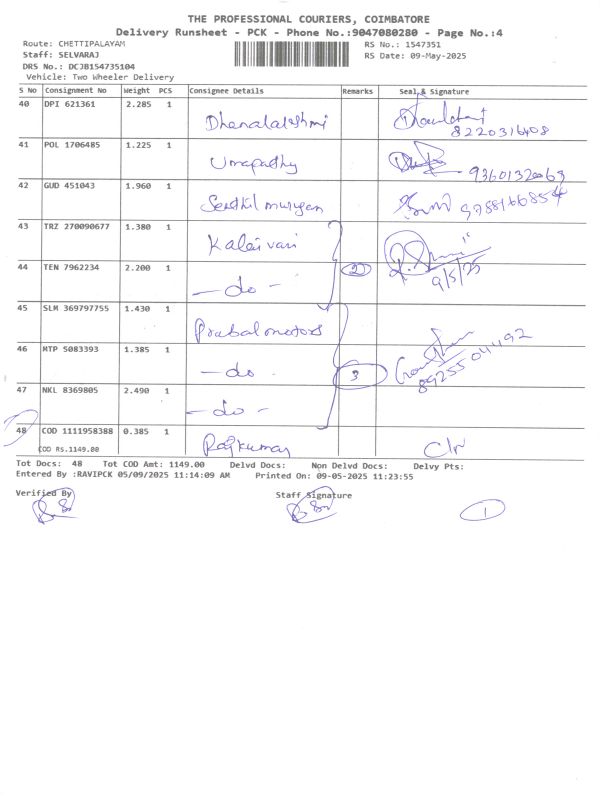 THE PROFESSIONAL COURIERS, COIMBATORE
Delivery Runsheet - PCK - Phone No.:9047080280 - Page No.:4
Route: CHETTIPALAYAM RS No.: 1547351
Staff: SELVARAJ RS Date: 09-May-2025
DRS No.: DCJB154735104
Vehicle: Two Wheeler Delivery
S No Consignment No Weight PCS Consignee Details Remarks Seal & Signature
40 DPI 621361 2.285 1 Dhanalakshmi
8220316408
41 POL 1706485 1.225 1 Umapathy 9360132069
42 GUD 451043 1.960 1 Senthil murugan 9788166854
43 TRZ 270090677 1.380 1 Kalaivani
44 TEN 7962234 2.200 1 - do - 2 9/5/25
45 SLM 369797755 1.430 1 Prabal motors
46 MTP 5083393 1.385 1 - do - 3 8925504492
47 NKL 8369805 2.490 1 - do -
48 COD 1111958388 0.385 1 Rajkumar
COD Rs.1149.00
Tot Docs: 48 Tot COD Amt: 1149.00 Delvd Docs: Non Delvd Docs: Delvy Pts:
Entered By :RAVIPCK 05/09/2025 11:14:09 AM Printed On: 09-05-2025 11:23:55
Verified By Staff Signature
1